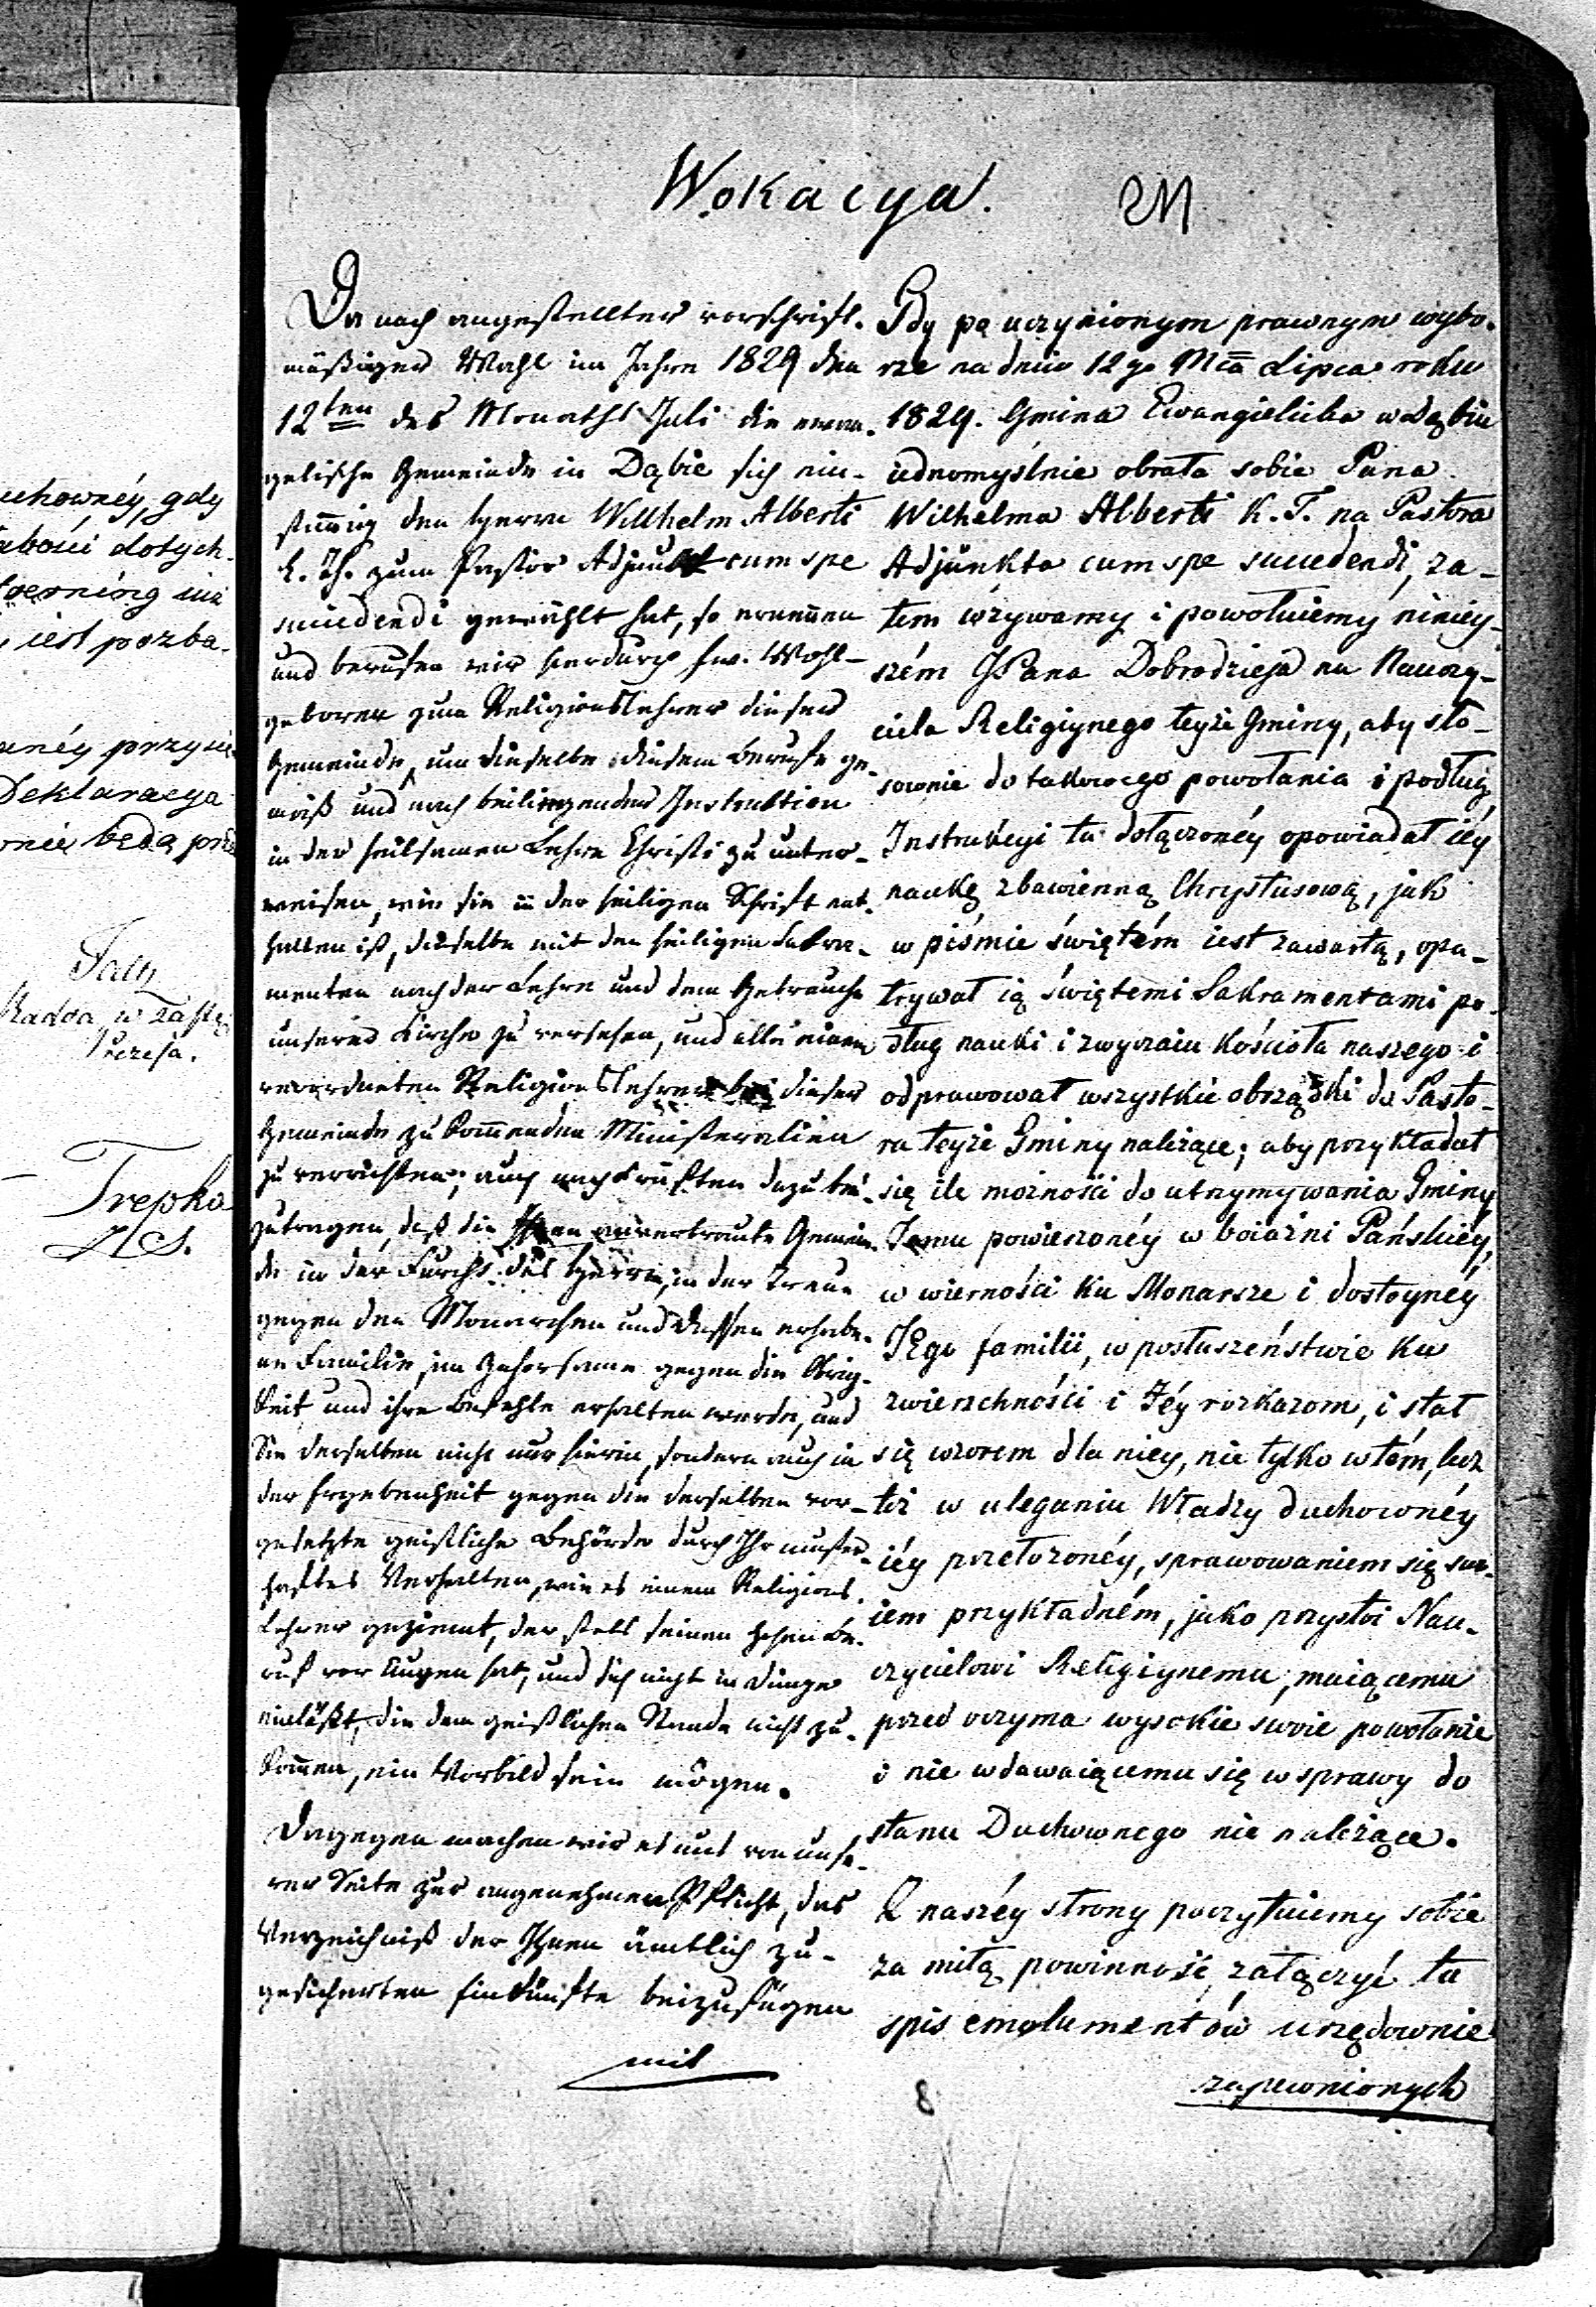 uchownéy, gdy
dotych-
nie
iest pozba-
Deklaracya
będą
Radca w Zastę
Prezesa.
Trepka
Wokacya.
Da nach angestellter vorschrift-
mäßiger Wahl im Jahre 1829 den
12ten des Monaths Juli die evan-
gelische Gemeinde in Dąbie sich ein-
stim̄ig den Herrn Willhelm Alberti
K. Th. zum Pastor Adjunkt cum spe
succedendi gewählt hat, so ernen̄en
und berufen wir hierdurch Ew. Wohl-
geboren zum Religionslehrer dieser
Gemeinde, um dieselbe diesem Berufe ge-
mäß und nach beiliegender Instruktion
in der heilsamen Lehre Christi zu unter-
weisen, wie sie in der heiligen Schrift ent-
halten ist, dieselbe mit den heiligen Sakra-
menten nach der Lehre und dem Gebrauche
unserer Kirche zu versehen, und alle einem
verordneten Religionslehrer bei dieser
Gemeinde zukom̄enden Ministerialien
zu verrichten; auch nach Kräften dazu bei-
zutragen, daß die Ihnen anvertraute Gemein-
de in der Furcht des Herrn, in der Treue
gegen den Monarchen und dessen erhabe-
ne Familie, im Gehorsame gegen die Obrig-
keit und ihre Befehle erhalten werde, und
Sie derselben nicht nur hierin, sondern auch in
der Ergebenheit gegen die derselben vor-
gesetzte geistliche Behörde durch Ihr muster-
haftes Verhalten, wie es einem Religions-
Lehrer geziemt, der stets seinen hohen Be-
ruf vor Augen hat, und sich nicht in Dinge
einläßt, die dem geistlichen Stande nicht zu-
kom̄en, ein Vorbild sein mögen.
Dagegen machen wir es uns von unse-
rer Seite zur angenehmen Pflicht, das
Verzeichniß der Ihnen ämtlich zu-
gesicherten Einkünfte beizufügen
mit
Gdy po uczynionym prawnym wybo-
rze na dniu 12go Mca Lipca roku
1829. Gmina Ewangielicka w Dąbiu
iednomyślnie obrała sobie Pana
Wilhelma Alberti K. T. na Pastora
Adjunkta cum spe succedendi, za-
tem wzywamy i powołuiemy ninieÿ-
szém JPana Dobrodzieja na Nauczy-
ciela Religiynego teyże Gminy, aby sto-
sownie do takowego powołania i podług
Instrukcyi tu dołączonéy opowiadał iéy
naukę zbawienną Chrystusową, jak
w piśmie świętém iest zawartą, opa-
trywał ią świętemi Sakramentami po-
dług nauki i zwyczaiu kościoła naszego i
odprawował wszystkie obrządki do Pasto-
ra teyże Gminy należące; aby przykładał
się ile możności do utrzymywania Gminy
Jemu powierzonéy w boiaźni Pańskiéy,
w wierności ku Monarsze i dostoynéy
JEgo familii, w posłuszeństwie ku
zwierzchności i Jéy rozkazom, i stał
się wzorem dla niey, nie tylko w tém, lecz
też w uleganiu Władzy duchownéy
iéy przełożonéy, sprawowaniem się swo-
iem przykładném, jako przystoi Nau-
czycielowi Religiynemu, maiącemu
przed oczyma wysokie swoie powołanie
i nie wdawaiącemu się w sprawy do
stanu Duchownego nie należące.
Z naszéy strony poczytuiemy sobie
za miłą powinność, załączyć tu
spis emolumentów urzędownie
zapewnionych
8